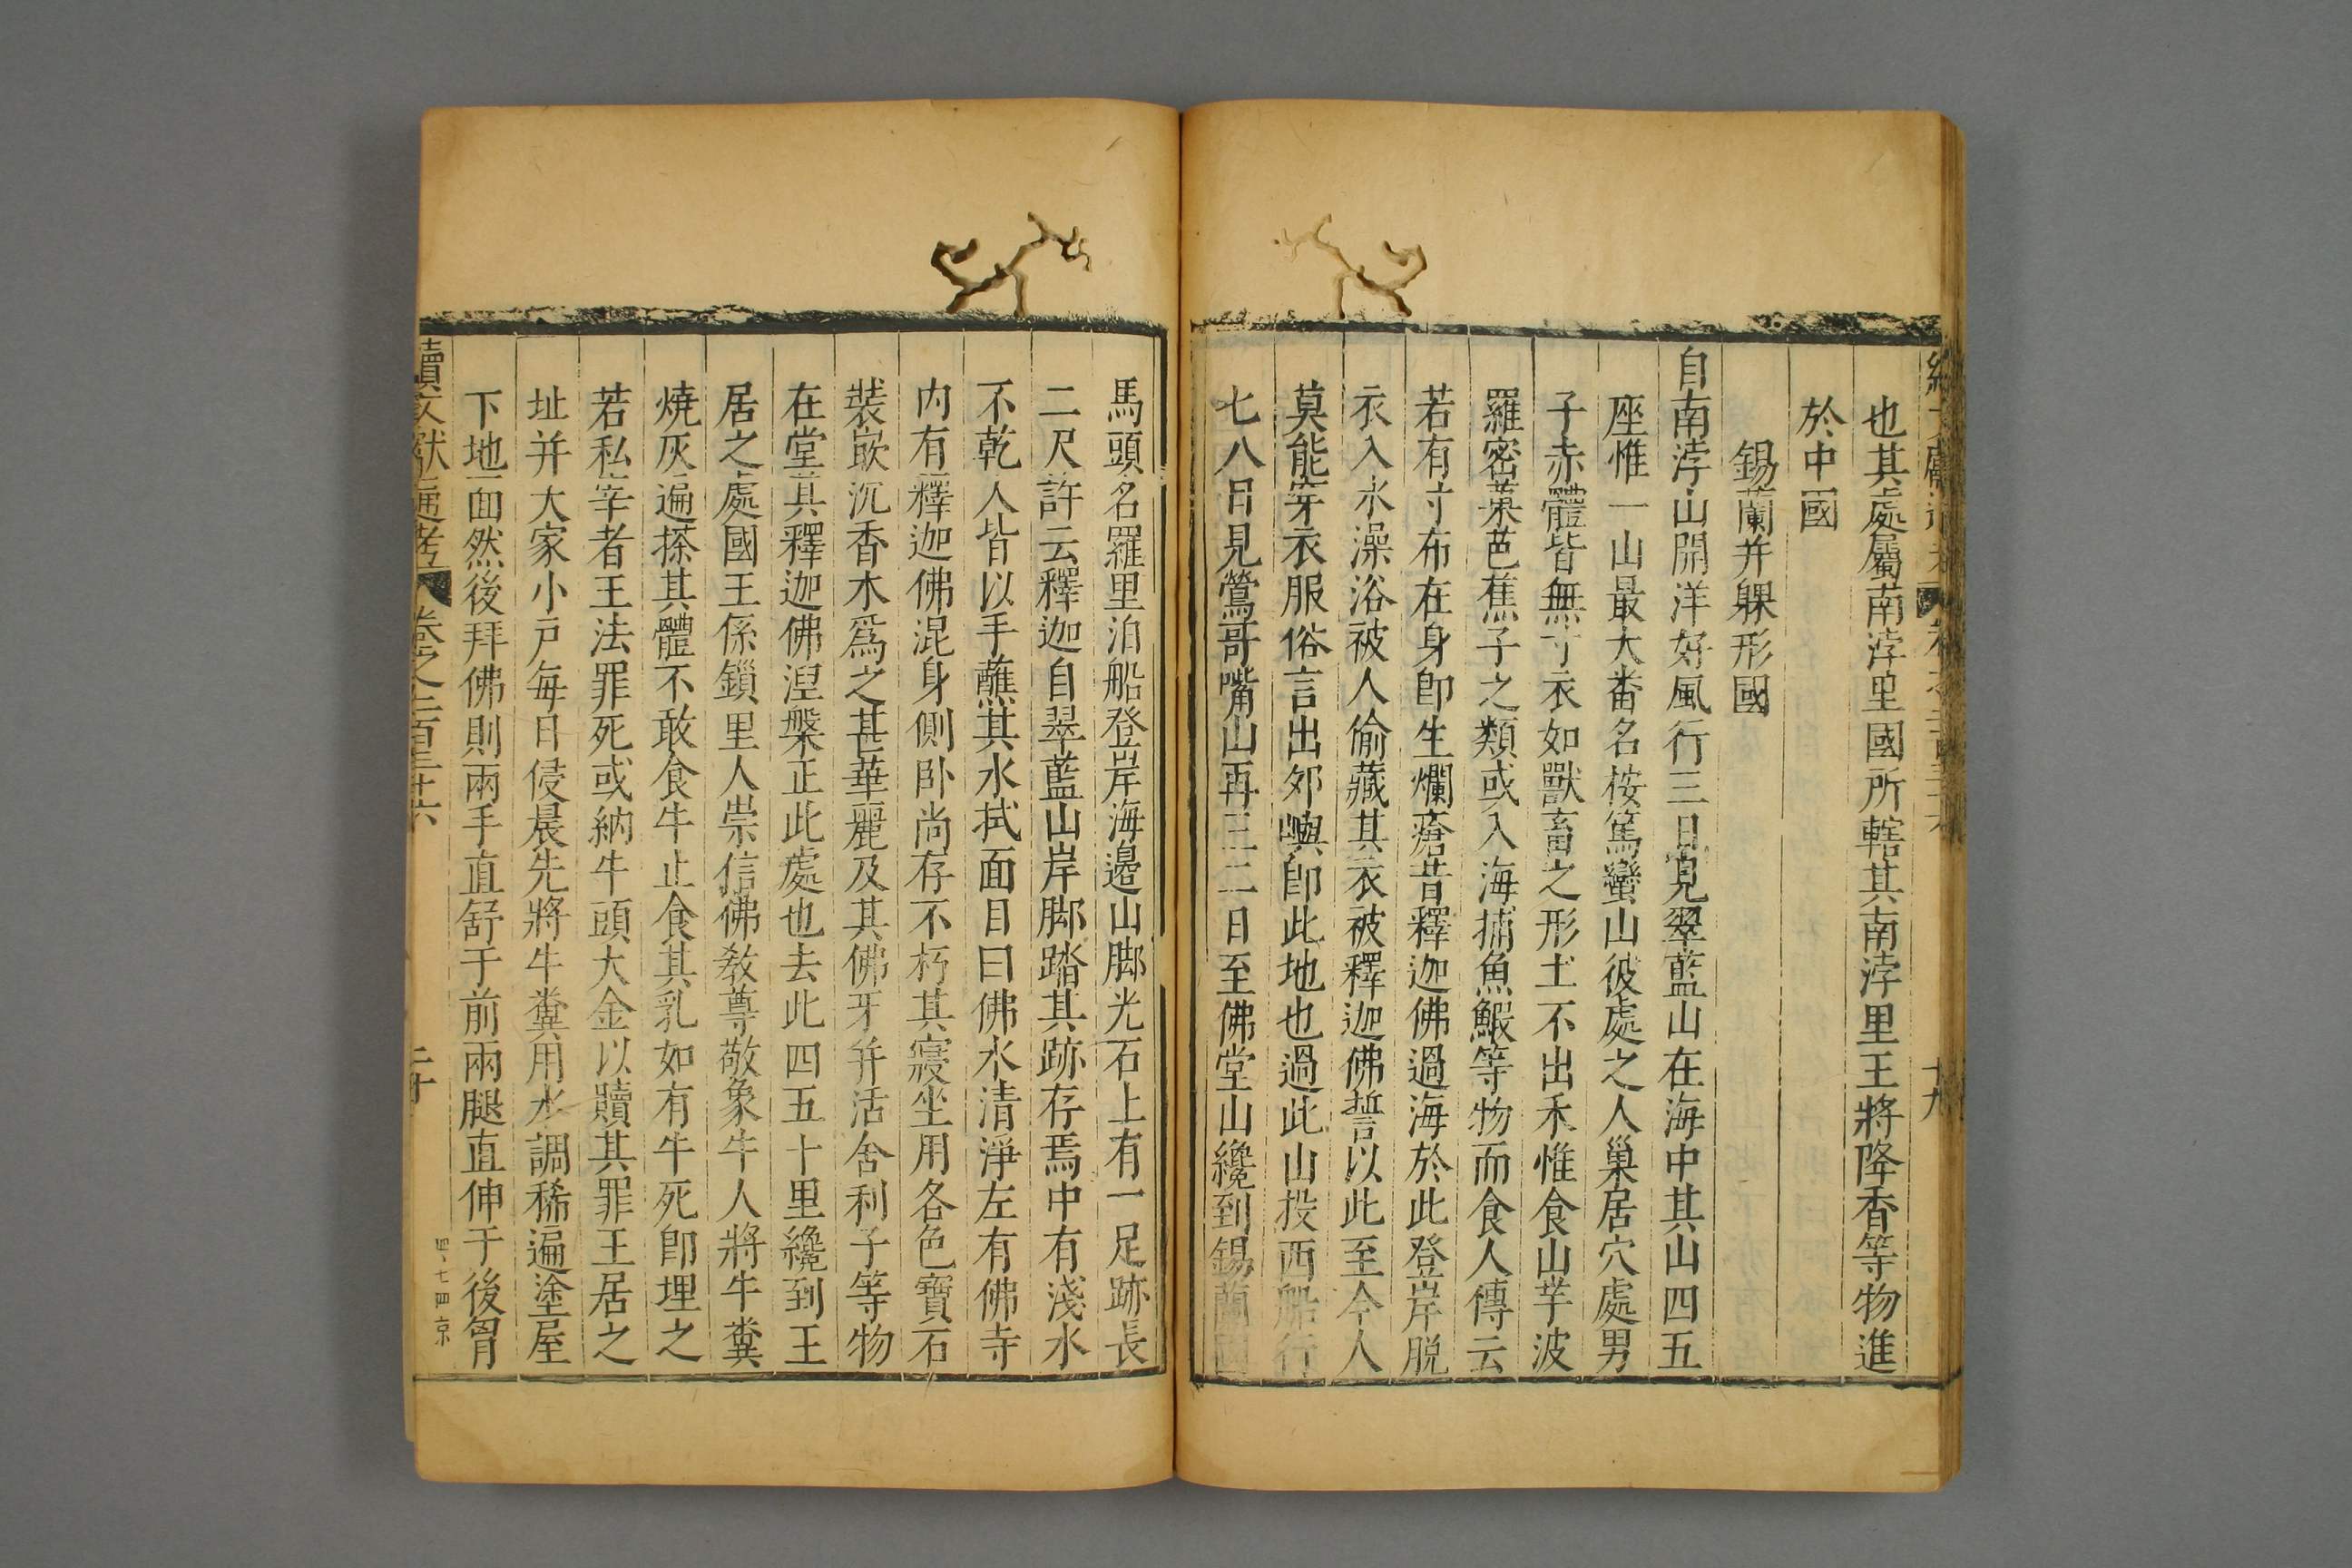 也其處屬南浡里國所轄其南浡里王將降香等物進
於中國
錫蘭并躶形國
自南浡山開洋好風行三日見翠藍山在海中其山四五
座惟一山最大番名桉篤蠻山彼處之人巢居穴處男
子赤體皆無寸衣如獸畜之形土不出禾惟食山芋波
羅密菓芭蕉子之類或入海捕魚鰕等物而食人傳云
若有寸布在身即生爛瘡昔釋迦佛過海於此登岸脫
衣入水澡浴被人偷藏其衣被釋迦佛誓以此至今人
莫能穿衣服俗言出夘嶼即此地也過此山投西船行
七八日見鶯哥嘴山再三二日至佛堂山纔到錫蘭國
馬頭名羅里泊船登岸海邊山脚光石上有一足跡長
二尺許云釋迦自翠藍山岸脚踏其跡存焉中有淺水
不乾人皆以手蘸其水拭面目曰佛水清淨左有佛寺
内有釋迦佛混身側卧尚存不朽其寢坐用各色寶石
裝嵌沉香木爲之甚華麗及其佛牙并活舍利子等物
在堂其釋迦佛涅槃正此處也去此四五十里纔到王
居之處國王係鎖里人崇信佛教尊敬象牛人將牛糞
燒灰遍搽其體不敢食牛止食其乳如有牛死即埋之
若私宰者王法罪死或納牛頭大金以贖其罪王居之
址并大家小戸每日侵晨先將牛糞用水調稀遍塗屋
下地面然後拜佛則兩手直舒于前兩腿直伸于後胷
續文獻通考 卷之二百三十六 二十
四七四京